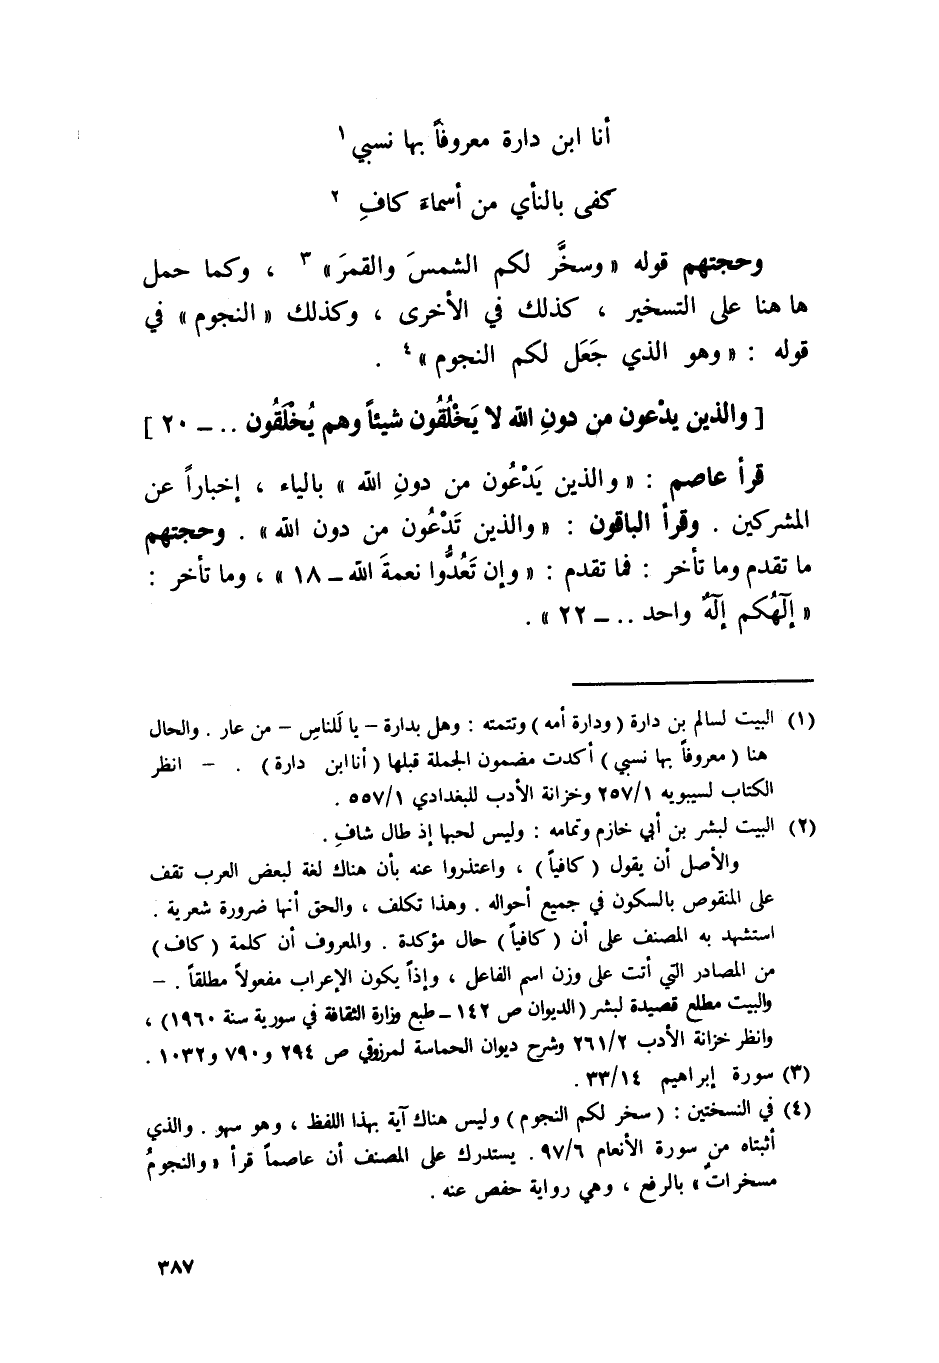 أنا ابن دارة معروفاً بها نسبي ١
كفى بالنأي من أسماءَ كافِ ٢
وحجتهم قوله « وسخَّر لكم الشمسَ والقمرَ » ٣ ، وكما حمل
ها هنا على التسخير ، كذلك في الأخرى ، وكذلك « النجوم » في
قوله : « وهو الذي جَعَل لكم النجوم » ٤ .
[ والذين يدْعون من دونِ الله لا يَخْلُقُون شيئاً وهم يُخْلَقُون .. ــ ٢٠ ]
قرأ عاصم : « والذين يَدْعُون من دونِ الله » بالياء ، إخباراً عن
المشركين . وقرأ الباقون : « والذين تَدْعُون من دون الله » . وحجتهم
ما تقدم وما تأخر : فما تقدم : « وإن تَعُدُّوا نعمةَ الله ــ ١٨ » ، وما تأخر :
« إلَهُكم إلَهٌ واحد .. ــ ٢٢ » .
(١) البيت لسالم بن دارة ( ودارة أمه ) وتتمته : وهل بدارة – يا لَلناسِ – من عار . والحال
هنا ( معروفاً بها نسبي ) أكدت مضمون الجملة قبلها ( أنا ابن دارة ) . – انظر
الكتاب لسيبويه ٢٥٧/١ وخزانة الأدب للبغدادي ٥٥٧/١ .
(٢) البيت لبشر بن أبي خازم وتمامه : وليس لحبها إذ طال شافِ .
والأصل أن يقول ( كافياً ) ، واعتذروا عنه بأن هناك لغة لبعض العرب تقف
على المنقوص بالسكون في جميع أحواله . وهذا تكلف ، والحق أنها ضرورة شعرية .
استشهد به المصنف على أن ( كافياً ) حال مؤكدة . والمعروف أن كلمة ( كاف )
من المصادر التي أتت على وزن اسم الفاعل ، وإذاً يكون الإعراب مفعولاً مطلقاً . –
والبيت مطلع قصيدة لبشر ( الديوان ص ١٤٢ ــ طبع وزارة الثقافة في سورية سنة ١٩٦٠ ) ،
وانظر خزانة الأدب ٢٦١/٢ وشرح ديوان الحماسة لمرزوقي ص ٢٩٤ و٧٩٠ و١٠٣٢ .
(٣) سورة إبراهيم ٣٣/١٤ .
(٤) في النسختين : ( سخر لكم النجوم ) وليس هناك آية بهذا اللفظ ، وهو سهو . والذي
أثبتاه من سورة الأنعام ٩٧/٦ . يستدرك على المصنف أن عاصماً قرأ « والنجومُ
مسخراتٌ » بالرفع ، وهي رواية حفص عنه .
٣٨٧